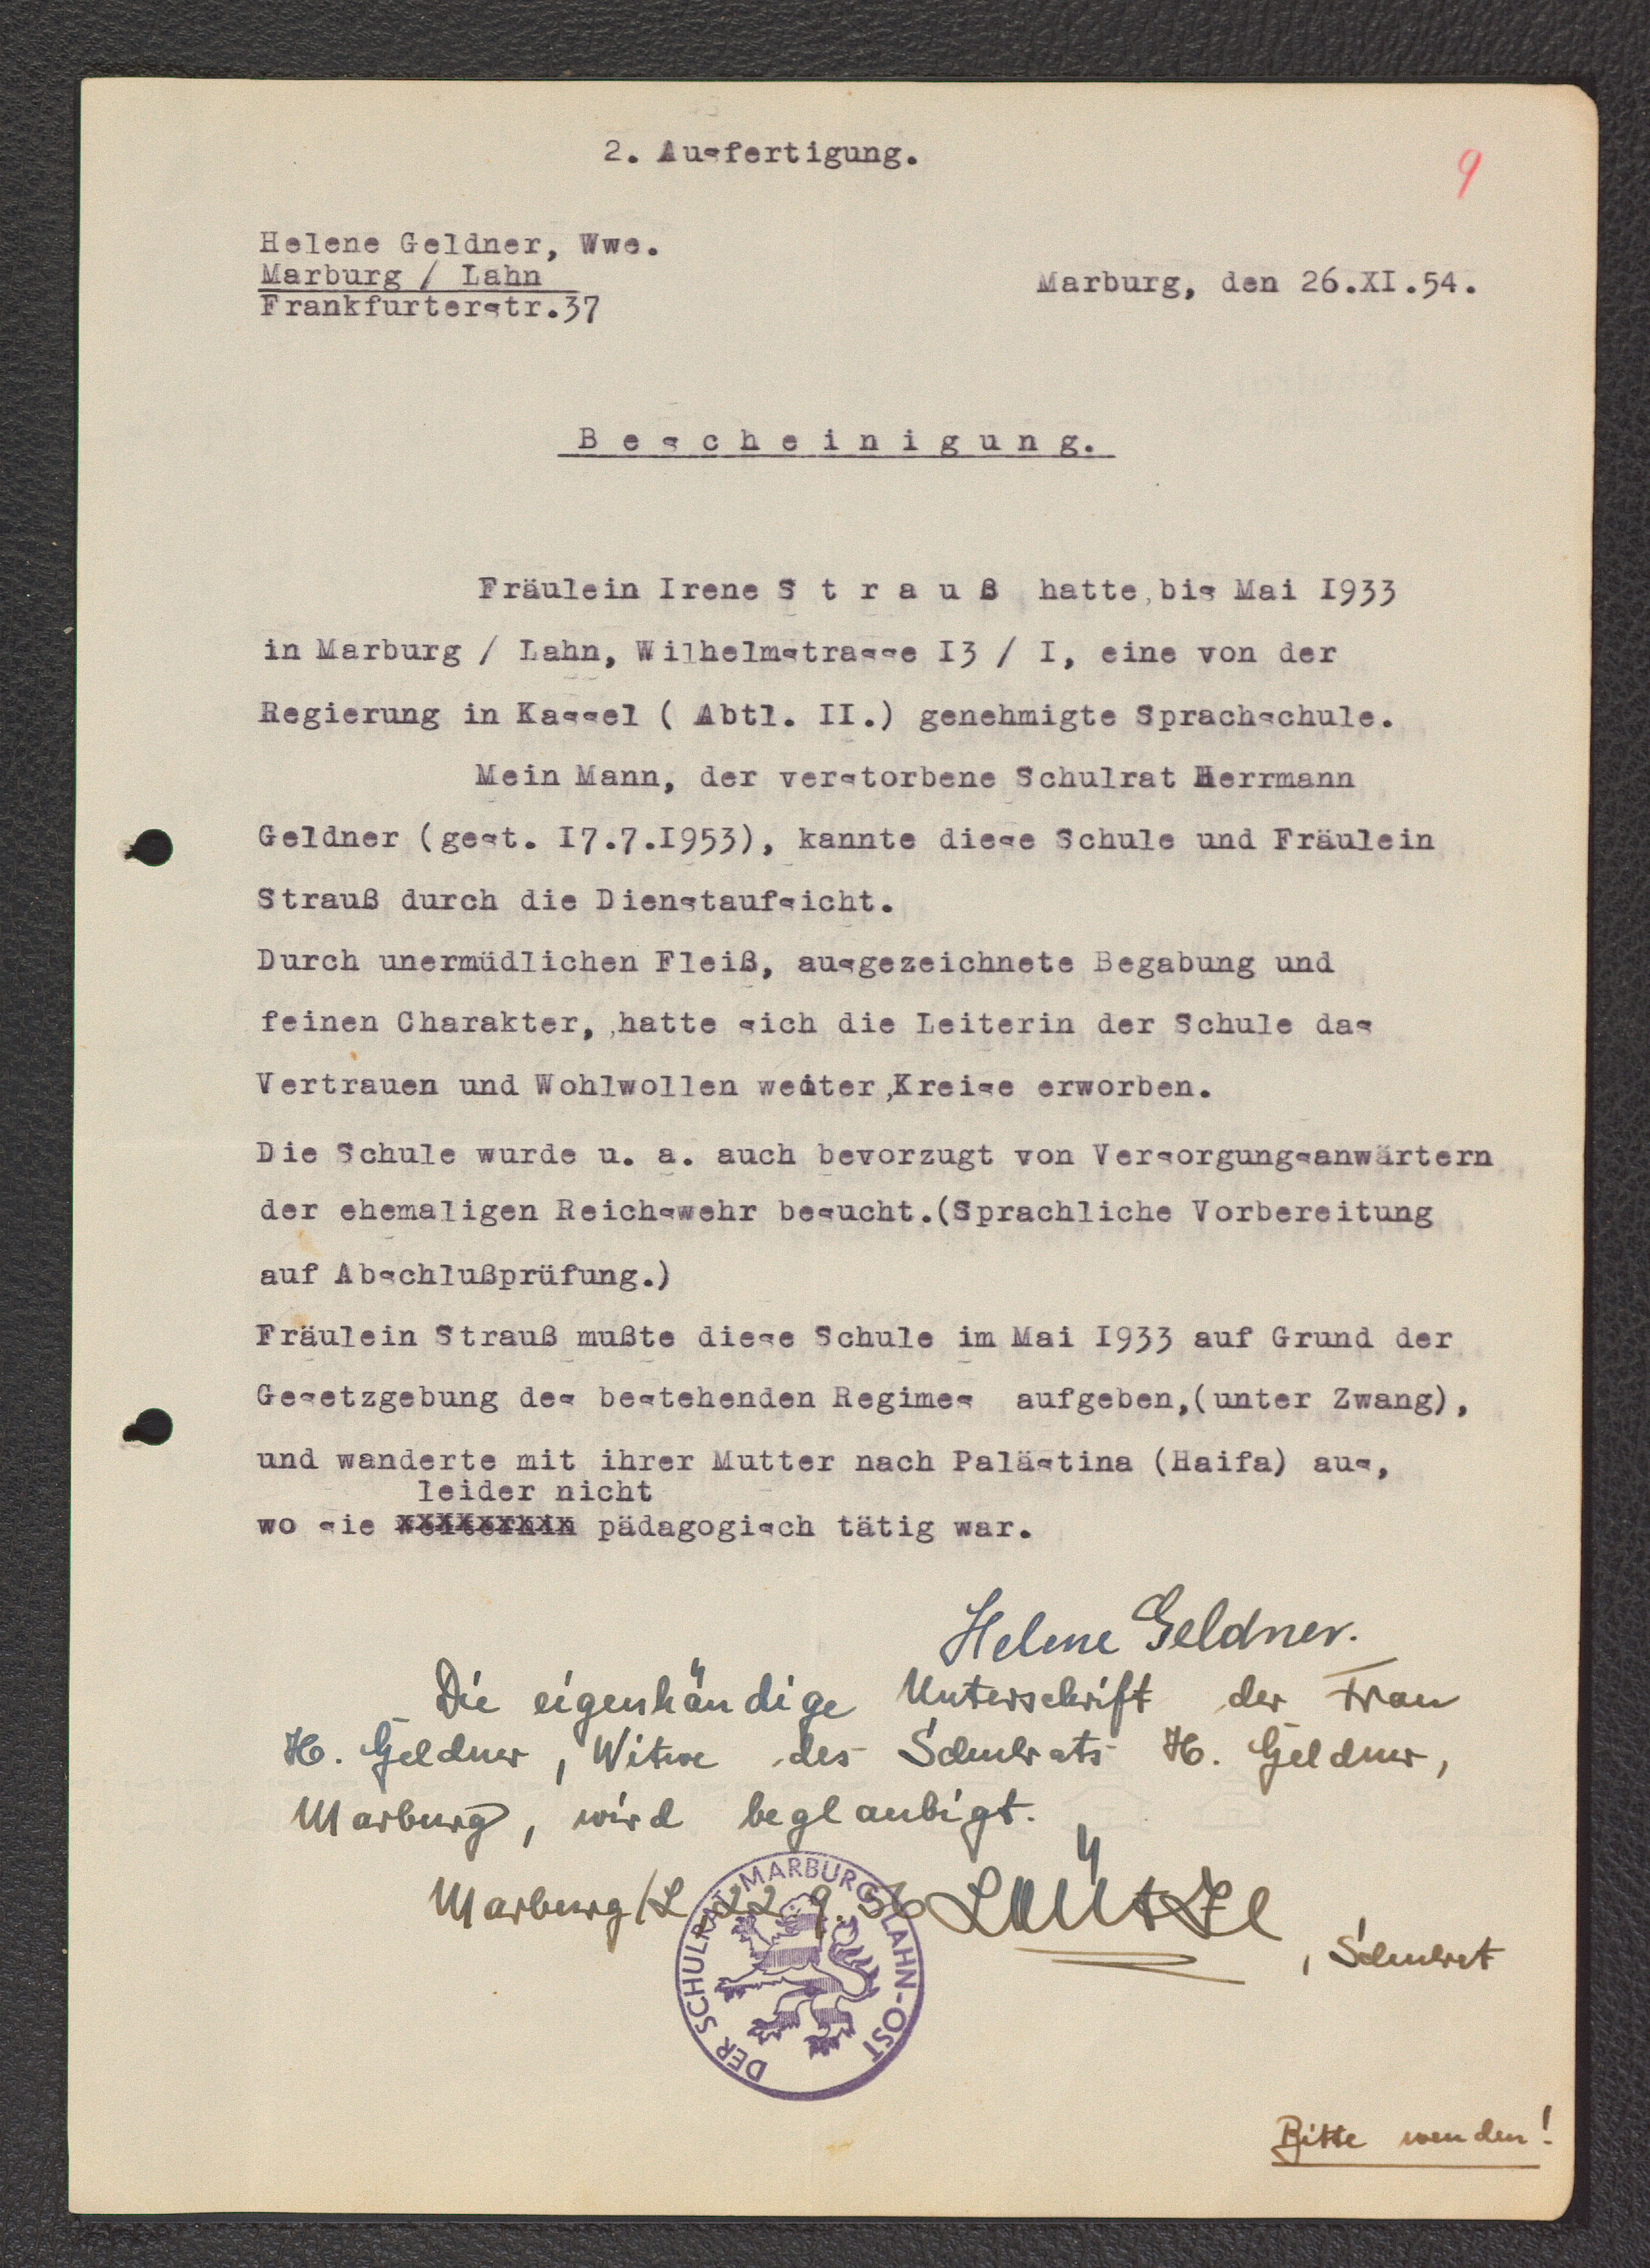 2. Ausfertigung.
9
Helene Geldner, Wwe.
Marburg / Lahn
Frankfurterstr.37
Marburg, den 26.XI.54.
B e s c h e i n i g u n g.
Fräulein Irene S t r a u ß hatte, bis Mai I933
in Marburg / Lahn, Wilhelmstrasse I3 / I, eine von der
Regierung in Kassel ( Abtl. II.) genehmigte Sprachschule.
Mein Mann, der verstorbene Schulrat Herrmann
Geldner (gest. I7.7.I953), kannte diese Schule und Fräulein
Strauß durch die Dienstaufsicht.
Durch unermüdlichen Fleiß, ausgezeichnete Begabung und
feinen Charakter, ,hatte sich die Leiterin der Schule das
Vertrauen und Wohlwollen weiter ,Kreise erworben.
Die Schule wurde u. a. auch bevorzugt von Versorgungsanwärtern
der ehemaligen Reichswehr besucht.(Sprachliche Vorbereitung
auf Abschlußprüfung.)
Fräulein Strauß mußte diese Schule im Mai I933 auf Grund der
Gesetzgebung des bestehenden Regimes aufgeben,(unter Zwang),
und wanderte mit ihrer Mutter nach Palästina (Haifa) aus,
leider nicht
wo sie weiterhin pädagogisch tätig war.
Helene Geldner.
Die eigenhändige Unterschrift der Frau
H. Geldner, Witwe des Schulrats H. Geldner,
Marburg, wird beglaubigt.
Marburg/L 22.9.56
, Schulrat
DER SCHULRAT MARBURG LAHN-OST
Bitte wenden!